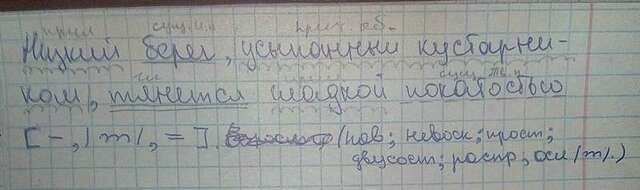 прил сущ. и.п. прич. об.
Низкий берег, усыпанный кустарни-
гл. сущ. Тв. п.
ком, тянется гладкой покатостью
[-, |m/, =]. (пов; невоск; прост;
двусост; распр, осл /m/.)